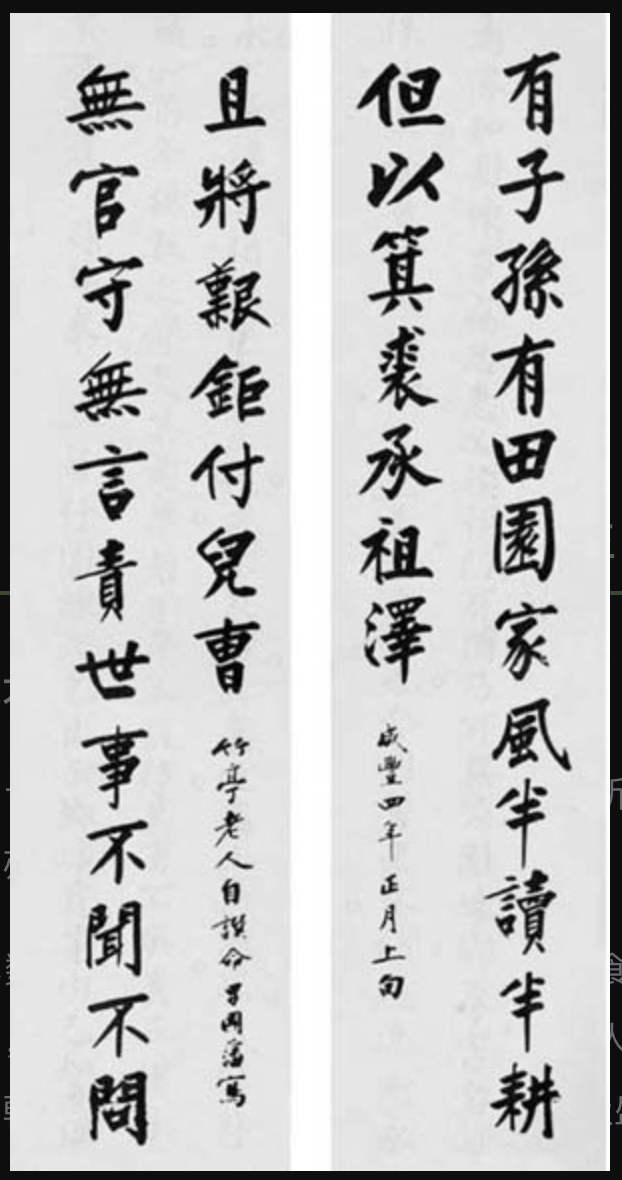 有子孫有田園家風半讀半耕
但以箕裘承祖澤
咸豐四年正月上旬
無官守無言責世事不聞不問
且將艱鉅付兒曹
竹亭老人自譔命男國藩寫